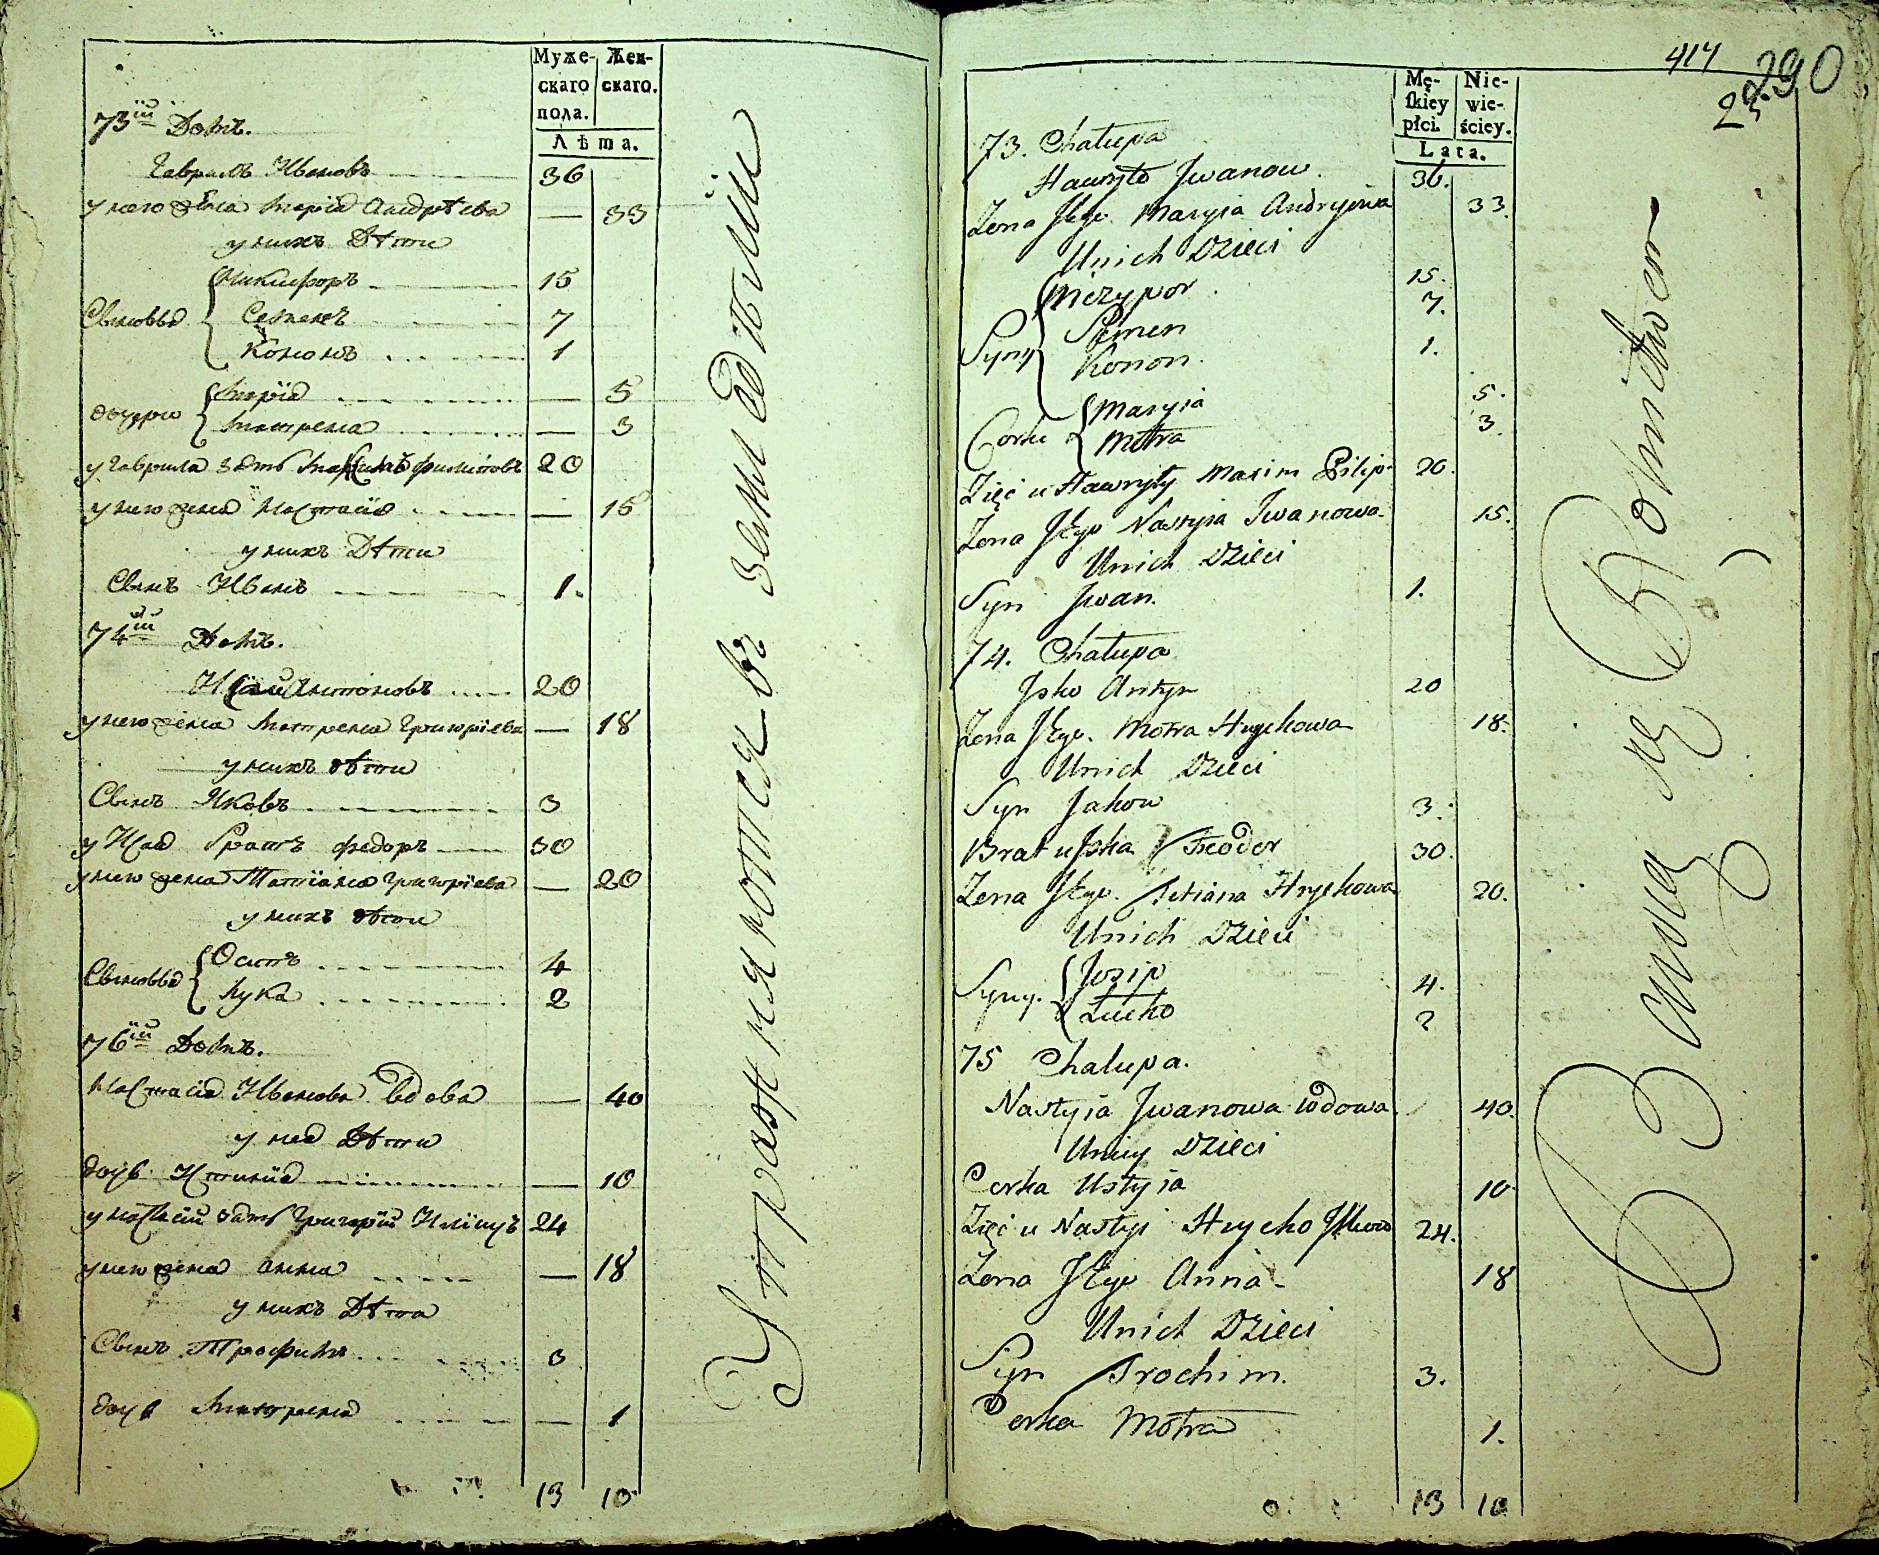 Муже- Жен-
скаго скаго.
пола.
Лѣта.
73ій Домъ.
Гаврилъ Ивановъ 36
у него жена Марія Андрѣева — 33
у нихъ Дѣти
Сыновья Никифоръ 15
Семенъ 7
Кононъ 1
дочери Марія — 5
Матрена — 3
у Гаврила зять Максимъ Филиповъ 20
у него жена Настасія — 15
у нихъ Дѣти
Сынъ Иванъ 1.
74ій Домъ.
Исай Антоновъ 20
у него жена Матрена Григоріева — 18
у нихъ дѣти
Сынъ Яковъ 3
у Исая братъ Федоръ 30
у него жена Татіана Григоріева — 20
у нихъ дѣти
Сыновья Осипъ 4
Лука 2
76ій Домъ.
Настасія Иванова вдова — 40
у нея Дѣти
дочь Устинія — 10
у Настасіи зять Григорій 24
у него жена Анна — 18
у нихъ Дѣти
Сынъ Трофимъ 3
дочь Матрена — 1
13 10
Упражняются въ земледѣліи
414
290
Mę- Nie-
skiey wie-
płci. ściey.
Lata.
73. Chałupa
Hawryło Jwanow. 36.
Zona Jego Maryia Andryiewa 33.
Unich Dzieci
Syny Niczypor 15.
Semen 7.
Konon. 1.
Corki Maryia 5.
Motra 3.
Zięć u Hawryły Maxim Pilip. 20.
Zona Jego Nastyia Jwanowa. 15.
Unich Dzieci
Syn Jwan. 1.
74. Chałupa
Jsko Antyn 20
Zona Jego. Motra Hrychowa 18.
Unich Dzieci
Syn Jakow 3.
Brat u Jska Fieodor 30.
Zona Jego. Tetiana Hrychowa 20.
Unich Dzieci
Syny. Josip 4.
Łucko 2
75 Chałupa.
Nastyia Jwanowa wdowa. 40.
Uniey Dzieci
Corka Ustyia 10.
Zięć u Nastyi Hrycho 24.
Zona Jego Anna 18
Unich Dzieci
Syn Trochim. 3.
Corka Motra 1.
13 10